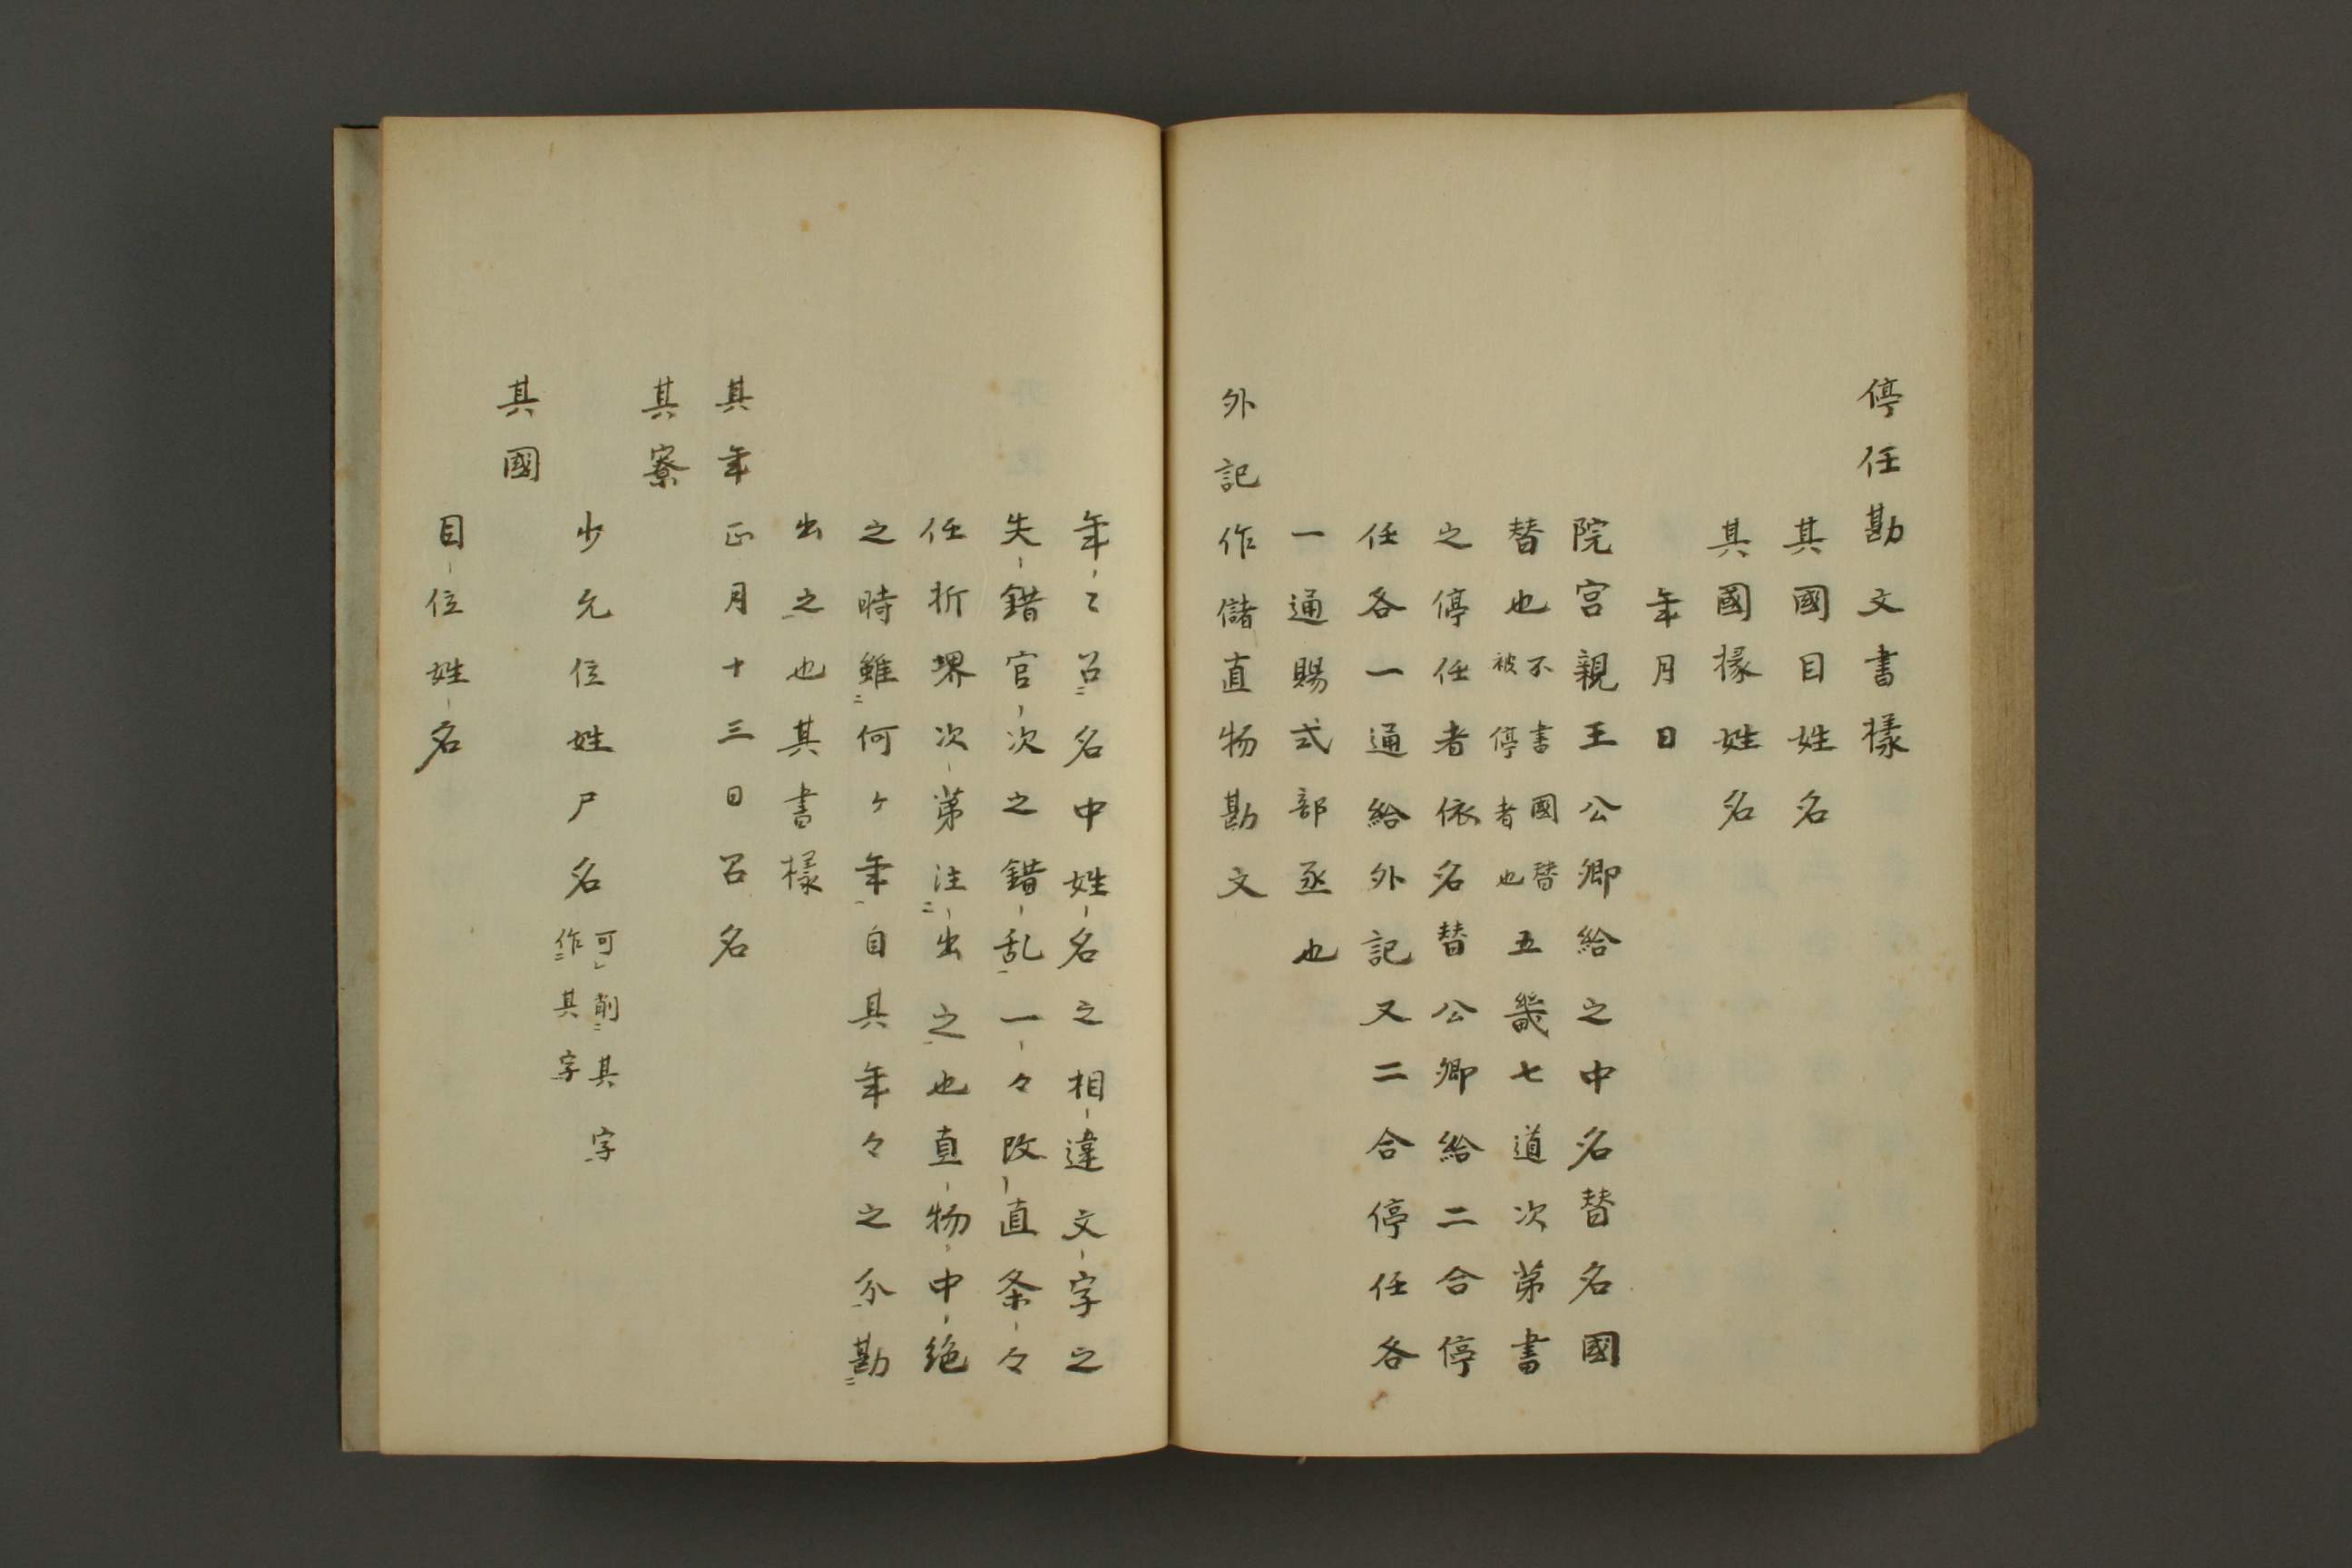 停任勘文書樣
其國目姓名
其國掾姓名
年月日
院宮親王公卿給之中名替名國
替也不書國替被停者也五畿七道次第書
之停任者依名替公卿給二合停
任各一通給外記又二合停任各
一通賜式部丞也
外記作儲直物勘文
年々召名中姓名之相違文字之
失錯官次之錯乱一々改直条々
任折堺次第注出之也直物中絶
之時雖何ヶ年自其年々之分勘
出之也其書樣
其年正月十三日召名
其寮
少允位姓尸名可削其字作其字
其國
目位姓名